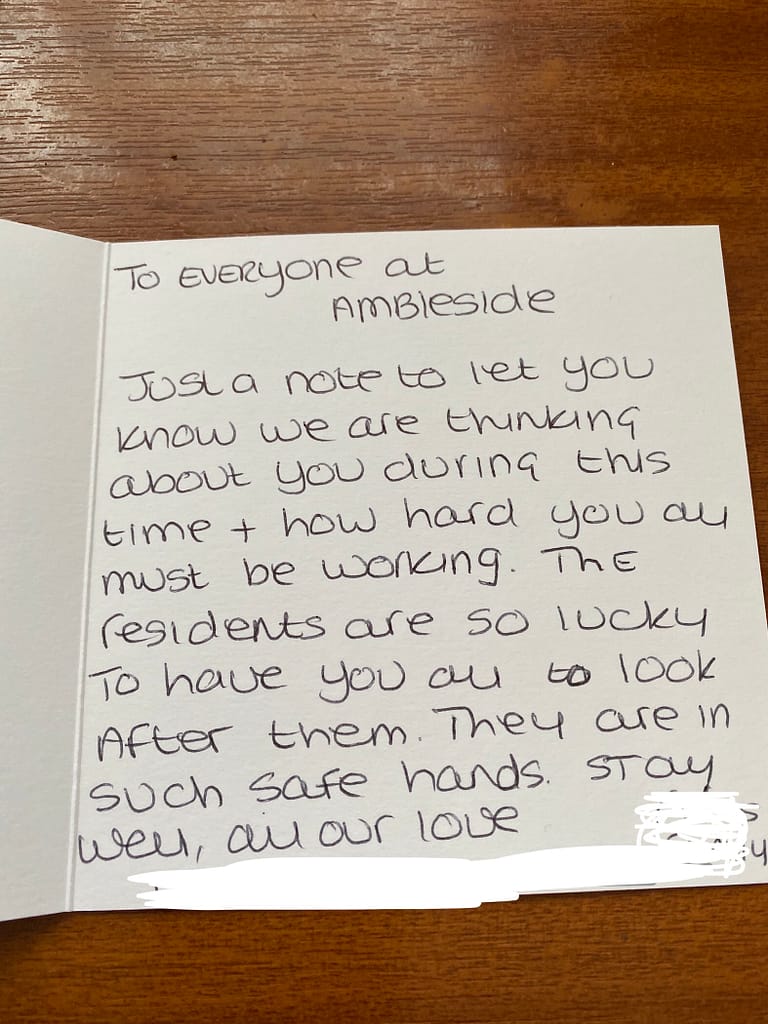 To EVERYone at
AMBleside
Just a note to let you
know we are thinking
about you during this
time + how hard you all
must be working. The
residents are so lucky
To have you all to look
After them. They are in
such safe hands. STay
well, all our love